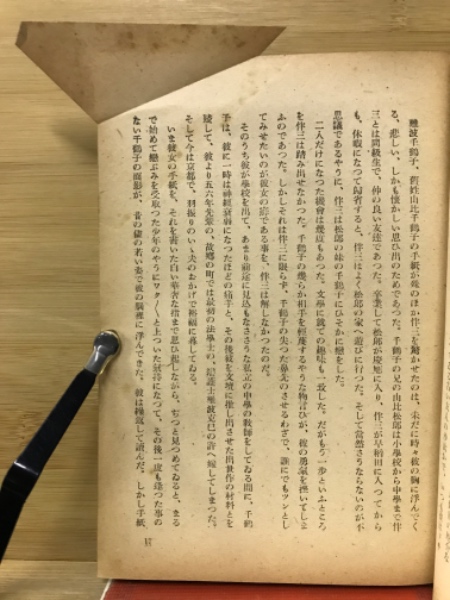 難波千鶴子、舊姓山比千鶴子の手紙が幾のほか伴三を驚かせたのは、未だに時々彼の胸に浮んでく
る、悲しい、しかも懐かしい思ひ出のためであつた。千鶴子の兄の山比松郎は小學校から中學まで伴
三とは同級生で、仲の良い友達であつた。卒業して松郎が慶應に入り、伴三が早稻田に入つてから
も、休暇になつて歸省すると、伴三はよく松郎の家へ遊びに行つた。そして當然さうならないのが不
思議であるやうに、伴三は松郎の妹の千鶴子にひそかに戀をした。
二人だけになつた機會は幾度もあつた。文學に就ての趣味も一致した。だがもう一步といふところ
を伴三は踏み出せなかつた。千鶴子の幾らか相手を輕蔑するやうな物言ひが、彼の勇氣を挫いてしま
ふのであつた。しかしそれは伴三に限らず、千鶴子の尖つた鼻先のさせるわざで、誰にでもツンとし
てみせたいのが彼女の癖である事を、伴三は解しなかつたのだ。
そのうち彼が學校を出て、あまり前途に見込もなささうな私立の中學の敎師をしてゐる間に、千鶴
子は、彼に一時は神經衰弱になつたほどの痛手と、その後彼を文壇に推し出させた出世作の材料とを
殘して、彼より五六年先輩の、故鄕の町では最初の法學士の、辯護士難波克巳の許へ嫁してしまつた。
そして今は京都で、羽振りのいゝ夫のおかげで裕福に暮してゐる。
いま彼女の手紙を、それを書いた白い華奢な指まで思ひ起しながら、ぢつと見つめてゐると、まる
で始めて戀ぶみを受取つた少年のやうにワク／＼と上ついた氣持になつて、その後一度も逢つた事の
ない千鶴子の面影が、昔の儘の若い姿で彼の腦裡に浮んできた。彼は繰返して讀んだ。しかし手紙